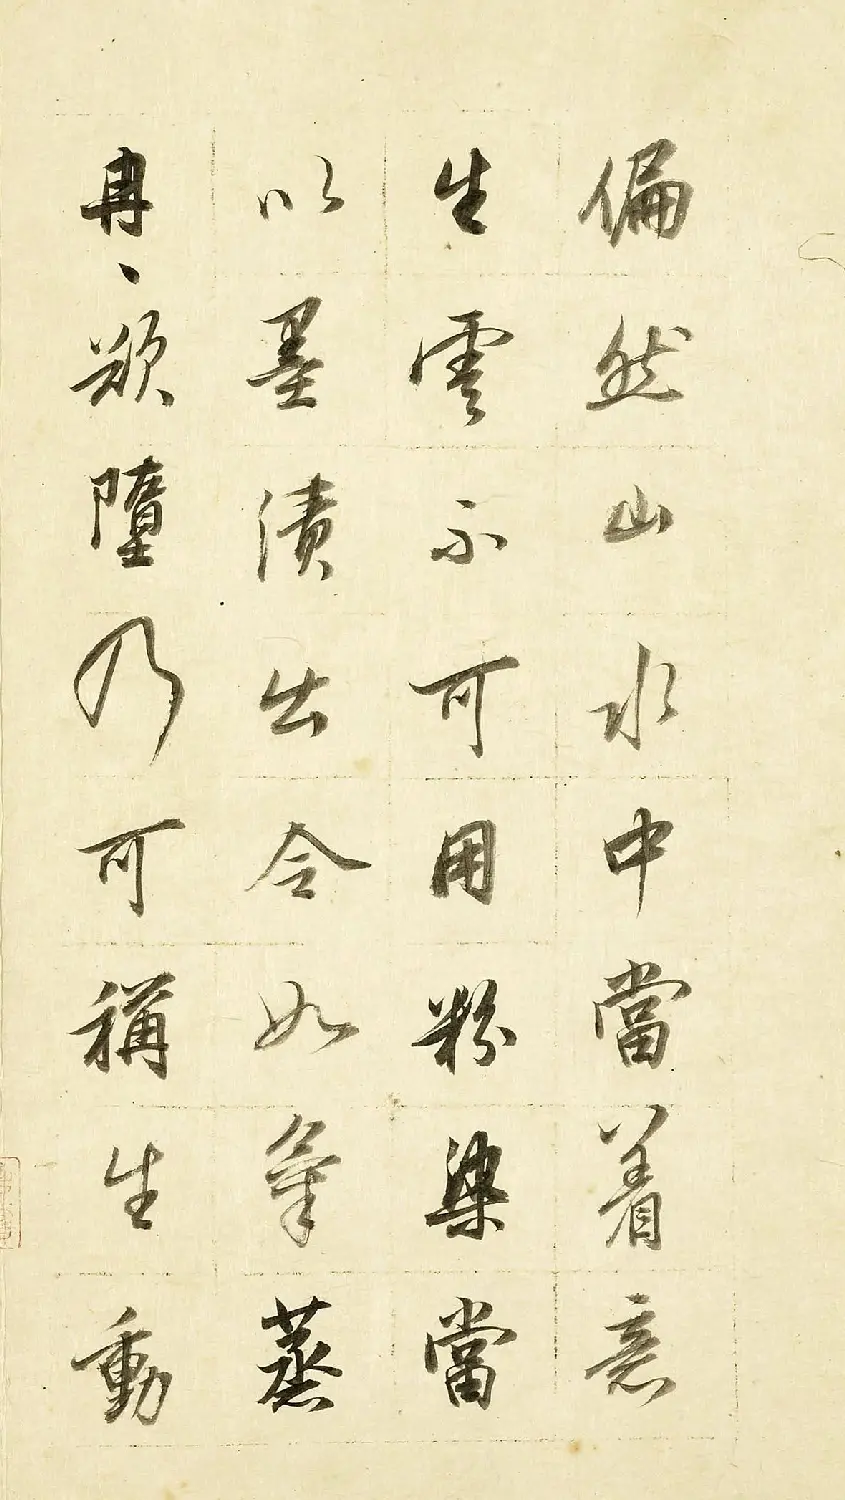 偏然山水中當着意
生雲不可用粉染當
以墨漬出令如氣蒸
冉〻欲墮乃可稱生動